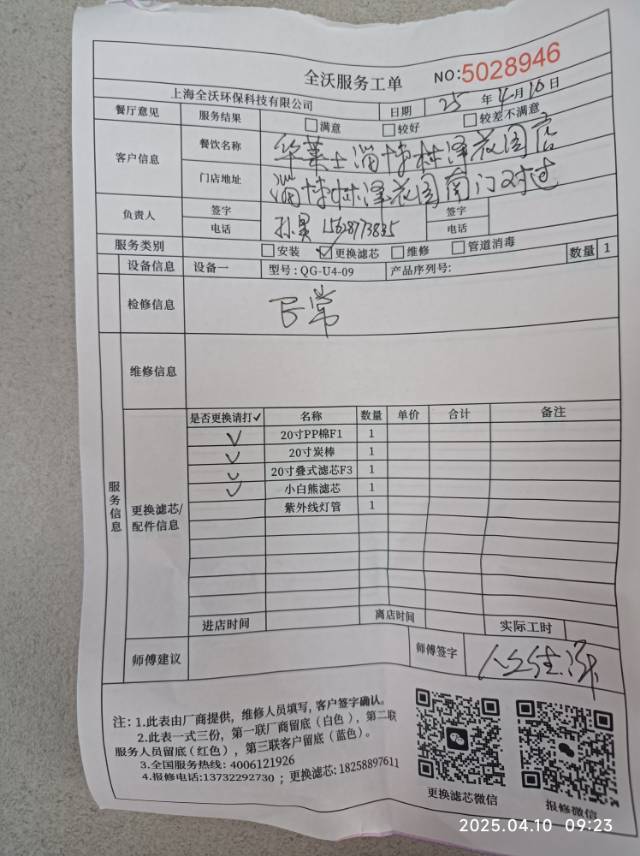 全沃服务工单 NO:5028946
上海全沃环保科技有限公司 日期 25 年 4 月 10 日
餐厅意见 服务结果 □满意 □较好 □较差不满意
客户信息 餐饮名称 华莱士淄博村泽花园店
门店地址 淄博村泽花园南门对过
负责人 签字 签字
电话 电话
服务类别 □安装 ☑更换滤芯 □维修 □管道消毒
设备信息 设备一 型号:QG-U4-09 产品序列号: 数量 1
检修信息 正常
维修信息
服务信息
更换滤芯/配件信息
是否更换请打✓ 名称 数量 单价 合计 备注
✓ 20寸PP棉F1 1
✓ 20寸炭棒 1
✓ 20寸叠式滤芯F3 1
✓ 小白熊滤芯 1
紫外线灯管 1
进店时间 离店时间 实际工时
师傅建议 师傅签字
注:1.此表由厂商提供,维修人员填写,客户签字确认。
2.此表一式三份,第一联厂商留底(白色),第二联
服务人员留底(红色),第三联客户留底(蓝色)。
3.全国服务热线:4006121926
4.报修电话:13732292730 ; 更换滤芯:18258897611
更换滤芯微信 报修微信
2025.04.10 09:23